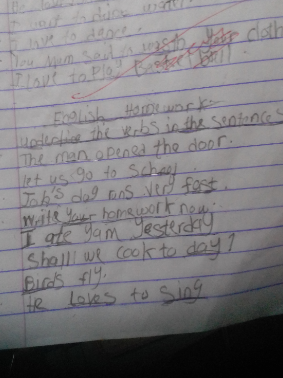 I want to drink water
I love to dance.
You Mum said to wash your cloth
I love to Play
English Homework:-
underline the verbs in the sentences
The man opened the door.
let us go to school
Job's dog runs very fast.
Write your homework now.
I ate yam yesterday
Shall we cook to day?
Birds fly.
He loves to sing